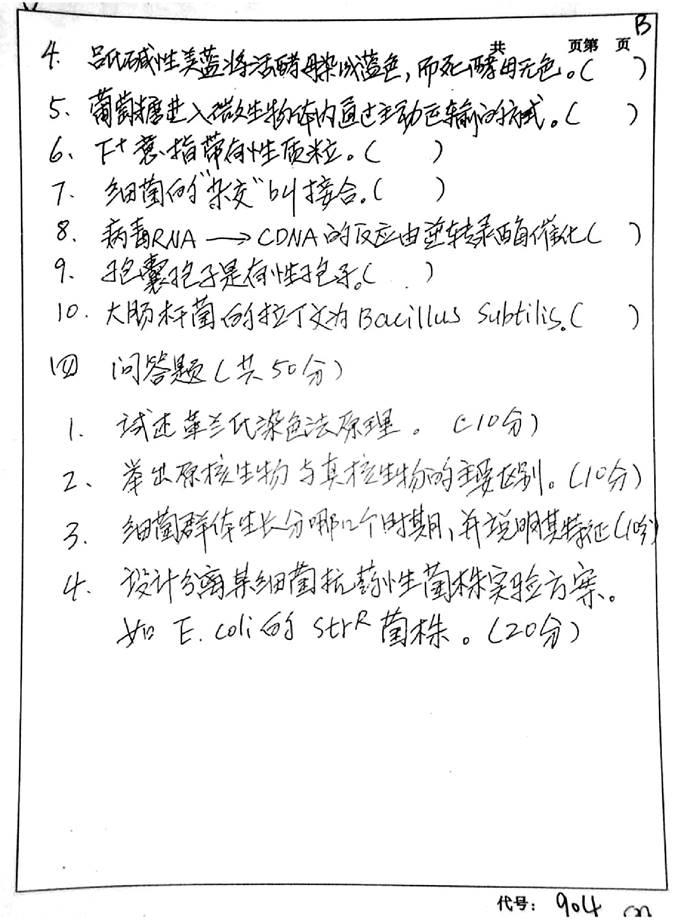 B
共 页第 页
4. 吕氏碱性美蓝将活酵母染成蓝色，而死酵母无色。( )
5. 葡萄糖进入微生物体内通过主动运输的方式。( )
6. F+意指带有性质粒。( )
7. 细菌的“杂交”叫接合。( )
8. 病毒RNA → CDNA的反应由逆转录酶催化( )
9. 孢囊孢子是有性孢子。( )
10. 大肠杆菌的拉丁文为Bacillus Subtilis.( )
四 问答题(共50分)
1. 试述革兰氏染色法原理。(10分)
2. 举出原核生物与真核生物的主要区别。(10分)
3. 细菌群体生长分哪几个时期，并说明其特征(10分)
4. 设计分离某细菌抗药性菌株实验方案。
如 E. coli的 strR 菌株。(20分)
代号： 904